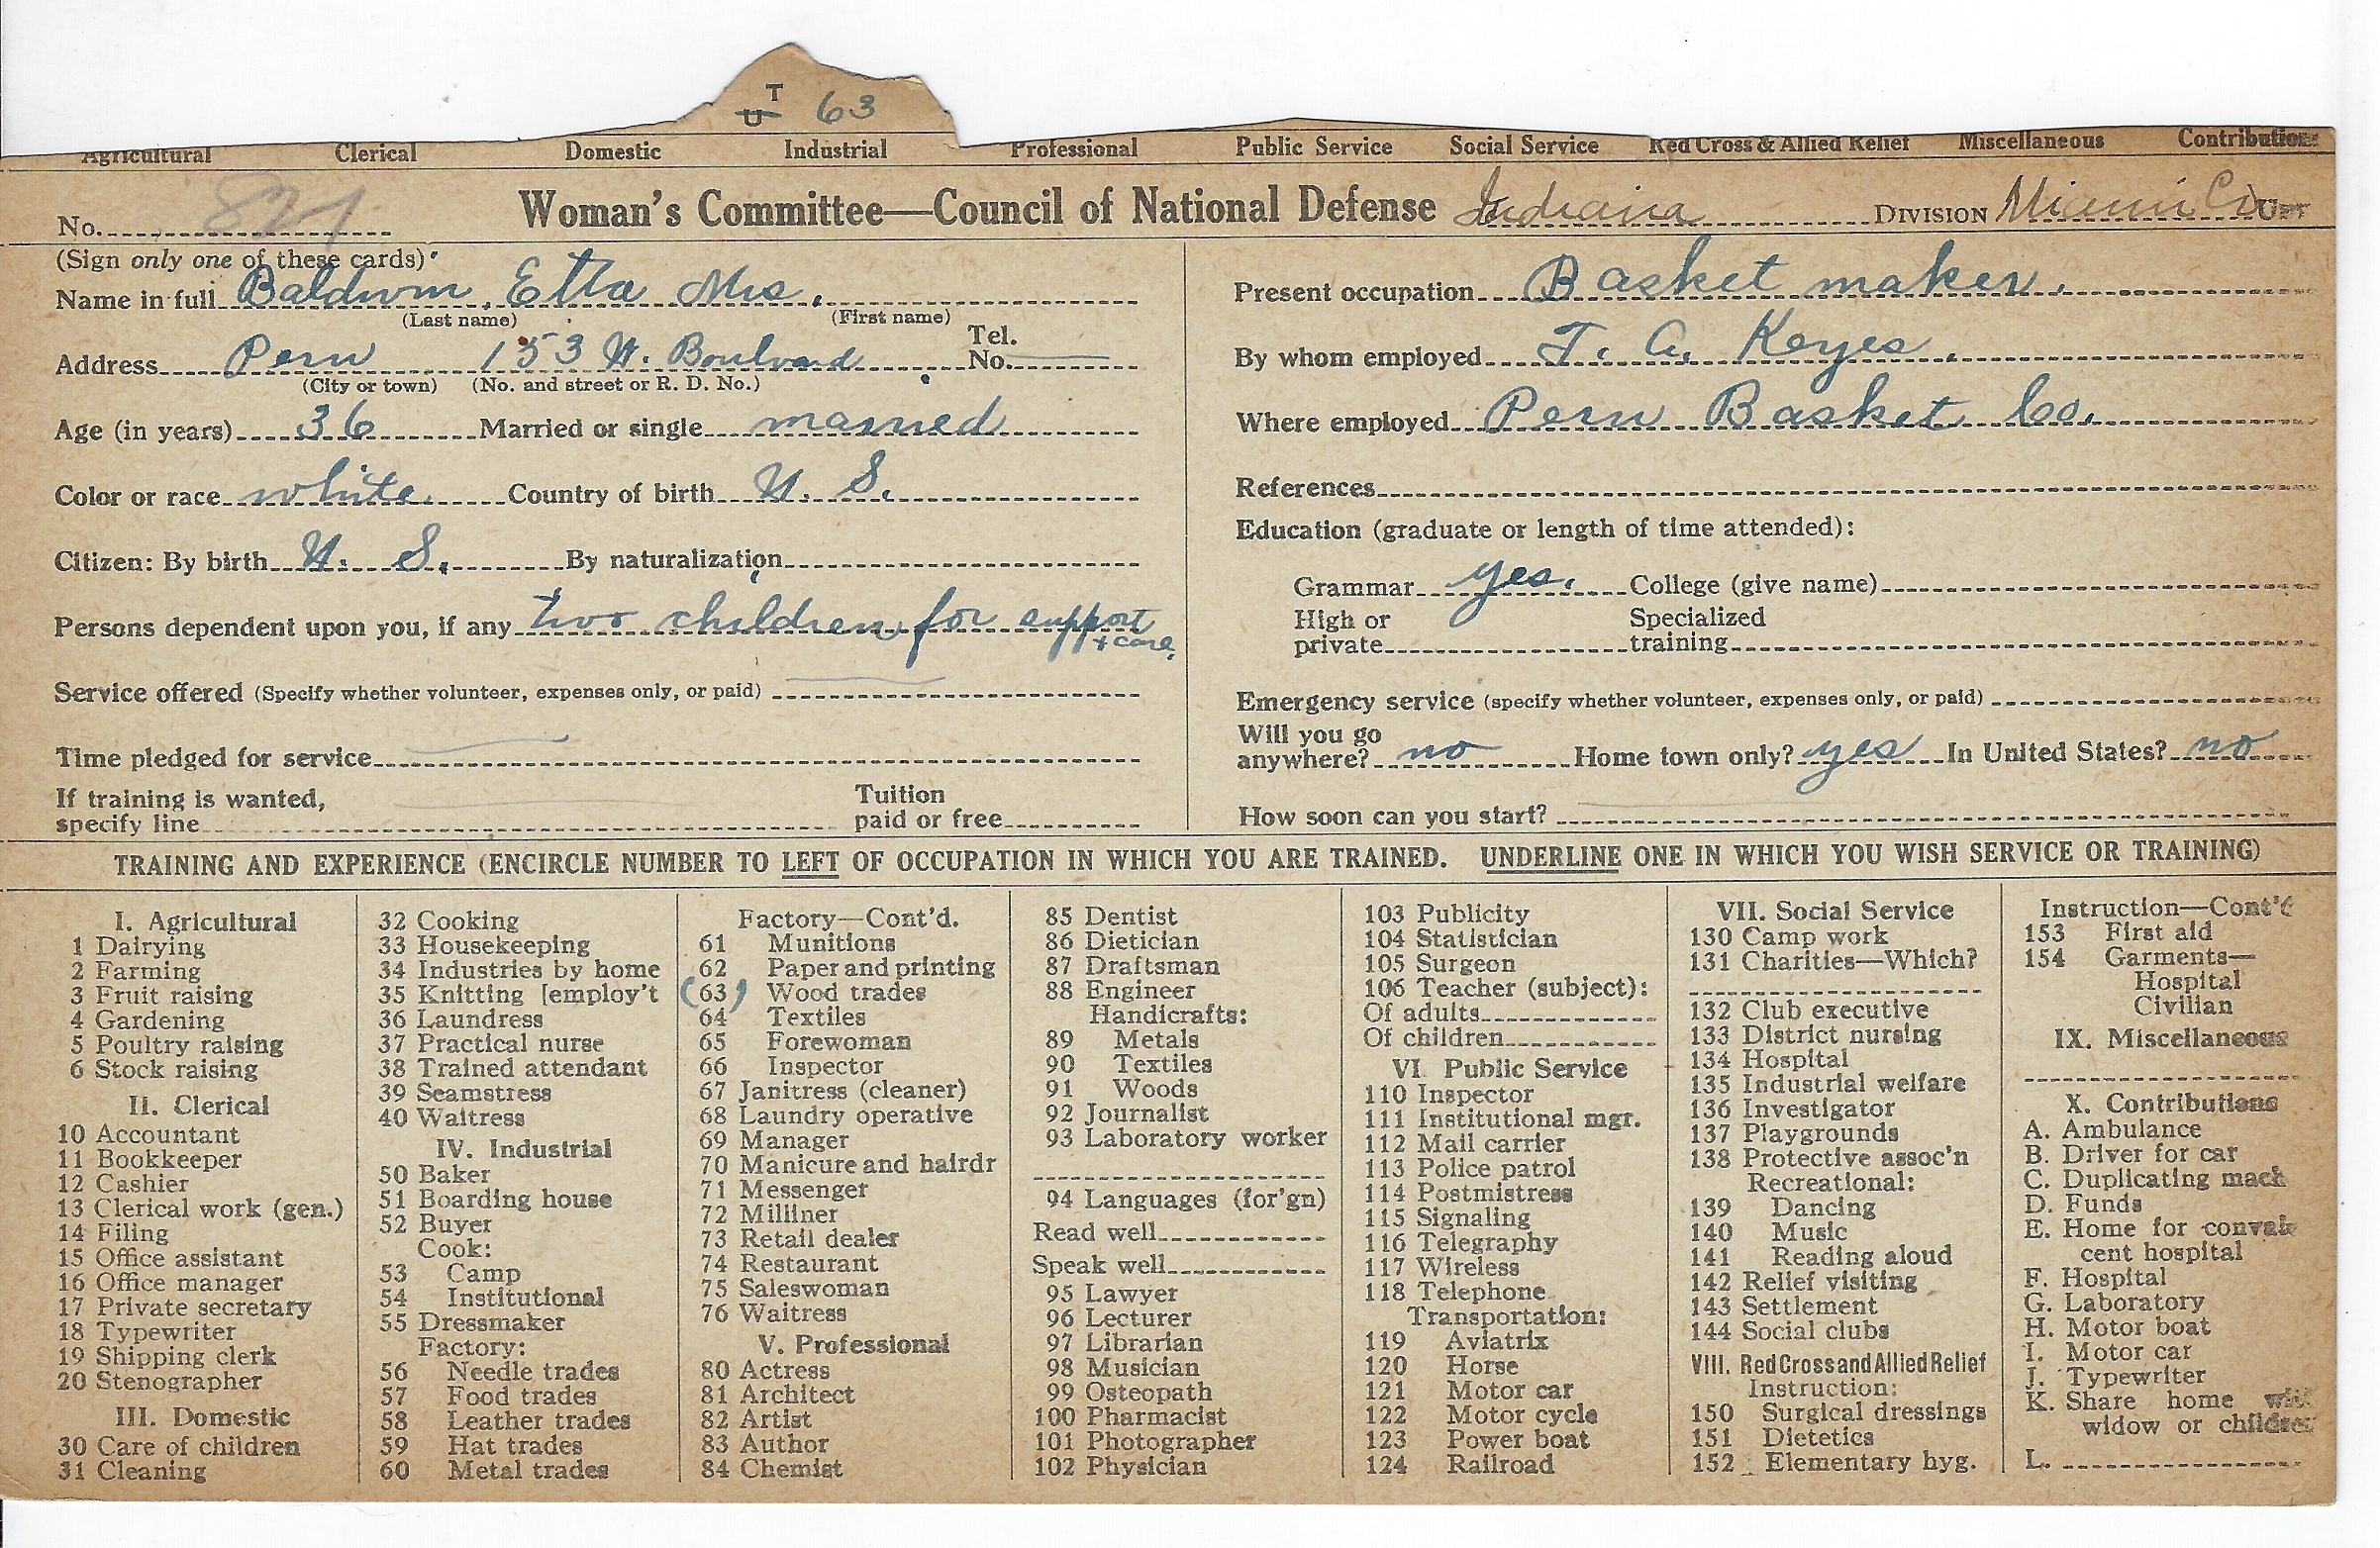 T
U 63
Agricultural Clerical Domestic Industrial Professional Public Service Social Service Red Cross & Allied Relief Miscellaneous Contributions
No. 821 Woman's Committee—Council of National Defense Indiana DIVISION Miami Co
(Sign only one of these cards)
Name in full Baldwin, Etta Mrs.
(Last name) (First name)
Address Peru 153 W. Boulvard Tel. No.
(City or town) (No. and street or R. D. No.)
Age (in years) 36 Married or single married
Color or race white Country of birth U. S.
Citizen: By birth U. S. By naturalization
Persons dependent upon you, if any two children for support
+ care.
Service offered (Specify whether volunteer, expenses only, or paid)
Time pledged for service
If training is wanted, specify line Tuition paid or free
Present occupation Basket maker.
By whom employed J. A. Keyes.
Where employed Peru Basket Co.
References
Education (graduate or length of time attended):
Grammar yes. College (give name)
High or private Specialized training
Emergency service (specify whether volunteer, expenses only, or paid)
Will you go anywhere? no Home town only? yes In United States? no
How soon can you start?
TRAINING AND EXPERIENCE (ENCIRCLE NUMBER TO LEFT OF OCCUPATION IN WHICH YOU ARE TRAINED. UNDERLINE ONE IN WHICH YOU WISH SERVICE OR TRAINING)
I. Agricultural
1 Dairying
2 Farming
3 Fruit raising
4 Gardening
5 Poultry raising
6 Stock raising
II. Clerical
10 Accountant
11 Bookkeeper
12 Cashier
13 Clerical work (gen.)
14 Filing
15 Office assistant
16 Office manager
17 Private secretary
18 Typewriter
19 Shipping clerk
20 Stenographer
III. Domestic
30 Care of children
31 Cleaning
32 Cooking
33 Housekeeping
34 Industries by home
35 Knitting [employ't
36 Laundress
37 Practical nurse
38 Trained attendant
39 Seamstress
40 Waitress
IV. Industrial
50 Baker
51 Boarding house
52 Buyer
Cook:
53 Camp
54 Institutional
55 Dressmaker
Factory:
56 Needle trades
57 Food trades
58 Leather trades
59 Hat trades
60 Metal trades
Factory—Cont'd.
61 Munitions
62 Paper and printing
(63) Wood trades
64 Textiles
65 Forewoman
66 Inspector
67 Janitress (cleaner)
68 Laundry operative
69 Manager
70 Manicure and hairdr
71 Messenger
72 Milliner
73 Retail dealer
74 Restaurant
75 Saleswoman
76 Waitress
V. Professional
80 Actress
81 Architect
82 Artist
83 Author
84 Chemist
85 Dentist
86 Dietician
87 Draftsman
88 Engineer
Handicrafts:
89 Metals
90 Textiles
91 Woods
92 Journalist
93 Laboratory worker
94 Languages (for'gn)
Read well
Speak well
95 Lawyer
96 Lecturer
97 Librarian
98 Musician
99 Osteopath
100 Pharmacist
101 Photographer
102 Physician
103 Publicity
104 Statistician
105 Surgeon
106 Teacher (subject):
Of adults
Of children
VI. Public Service
110 Inspector
111 Institutional mgr.
112 Mail carrier
113 Police patrol
114 Postmistress
115 Signaling
116 Telegraphy
117 Wireless
118 Telephone
Transportation:
119 Aviatrix
120 Horse
121 Motor car
122 Motor cycle
123 Power boat
124 Railroad
VII. Social Service
130 Camp work
131 Charities—Which?
132 Club executive
133 District nursing
134 Hospital
135 Industrial welfare
136 Investigator
137 Playgrounds
138 Protective assoc'n
Recreational:
139 Dancing
140 Music
141 Reading aloud
142 Relief visiting
143 Settlement
144 Social clubs
VIII. Red Cross and Allied Relief
Instruction:
150 Surgical dressings
151 Dietetics
152 Elementary hyg.
Instruction—Cont'd
153 First aid
154 Garments—
Hospital
Civilian
IX. Miscellaneous
X. Contributions
A. Ambulance
B. Driver for car
C. Duplicating mach
D. Funds
E. Home for convales
cent hospital
F. Hospital
G. Laboratory
H. Motor boat
I. Motor car
J. Typewriter
K. Share home with
widow or children
L.